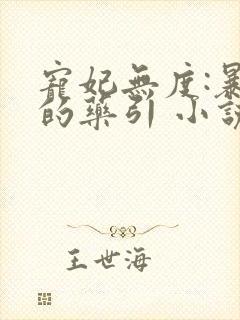 寵妃無度:暴
的藥引 小說
王世海